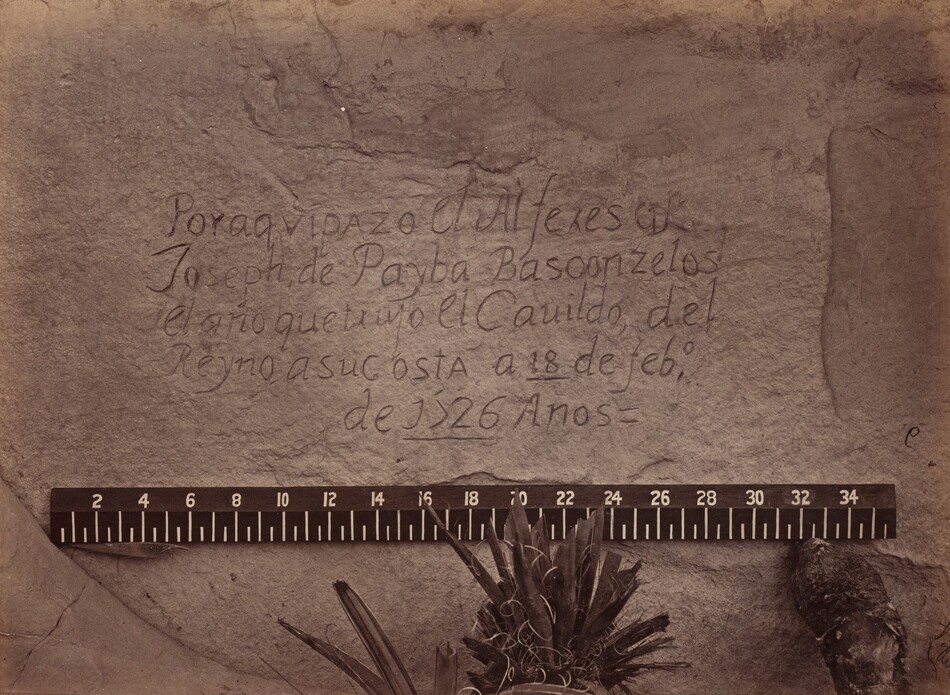 Por aqui pazo el Alferes Dn
Joseph de Payba Basconzelos
el año que tujo el Cauildo del
Reyno a su costa a 18 de febo
de 1726 Años=
2 4 6 8 10 12 14 16 18 20 22 24 26 28 30 32 34